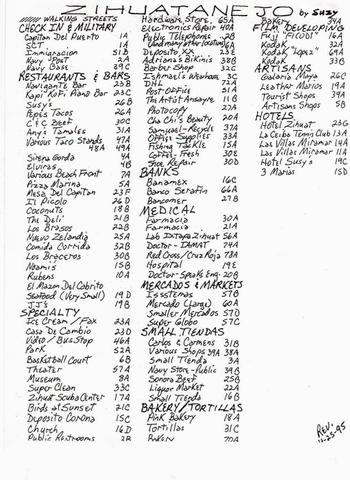 ZIHUATANEJO by Suzy
WALKING STREETS
CHECK IN & MILITARY
Capitan Del Puerto 1A
SCT 1A
Immigracion 51B
Navy Post 2A
Navy Base 29C
RESTAURANTS & BARS
Navigante Bar 23B
Kapi Kofi Piano Bar 23C
Susy's 26B
Pepes Tacos 26A
C & C Beef 30C
Any's Tamales 31A
Various Taco Stands 47A
48A 49A
Sirena Gorda 4A
Elviras 4B
Various Beach Front 7A
Pizza Marina 5A
Mesa Del Capitan 23F
Il Piccolo 26D
Coconuts 18B
The Deli 21B
Los Brasos 22B
Nueva Zelandia 25A
Comida Corrida 32B
Los Braceros 30B
Noamis 15B
Rubens 10A
El Mazon Del Cobrito
Seafood (Very Small) 19D
JJ's 19B
SPECIALTY
Ice Cream / Fax 23A
Casa De Cambio 23D
Video / Bus Stop 46A
Park 52A
Basketball Court 6B
Theater 57A
Museum 8A
Super Clean 33C
Zihuat Scuba Center 17A
Birds at Sunset 21C
Deposito Corona 15C
Church 16D
Public Restrooms 2B
Hardware Store 65A
Electronics Repair 40A
Public Telephone 2B
Deposito XX 23E
Adriana's Bikinis 38B
Barber Shop 32C
Ishmael's Wearhouse 3C
DHL 72A
Post Office 51A
The Artist Ansayre 11B
Photocopy 22A
Cha Chi's Beauty 20A
Samuael-Recycle 37A
Office Supplies 33A
Fishing Tackle 15A
Coffee-Fresh 30E
Shoe Repair 30B
BANKS
Banamex 16C
Banco Serafin 66A
Bancomer 27B
MEDICAL
Farmacia 30A
Farmacia 21A
Lab Ixtapa Zihuat 56A
Doctor-IAMAT 74A
Red Cross/Cruz Roja 73A
Hospital 19E
Doctor-Speaks Eng. 20B
MERCADOS & MARKETS
Isssstemas 57B
Mercado (Large) 60A
Smaller Mercados 57D
Super Globo 57C
SMALL TIENDAS
Carlos & Carmens 31B
Various Shops 39A 38A
Small Tienda 3A
Navy Store-Public 39B
Sonora Beef 25B
Liquor Market 22A
Small Tienda 16B
BAKERY/TORTILLAS
Pink Bakery 18A
Tortillas 31C
Bakery 70A
Bakery 34A
FILM DEVELOPING
Fuji "FICODI" 26A
Kodak 32A
Kodak "Lopez" 69A
Kodak 33B
ARTISANS
Galaria Maya 26C
Leather Marios 19A
Tourist Shops 39A
Artisans Shops 5B
HOTELS
Hotel Zihuat 23G
La Ceiba Temp Club 13A
Las Villas Miramar 14A
Las Villas Miramar 11A
Hotel Susy's 19C
3 Marias 15D
REV.
11-25-95